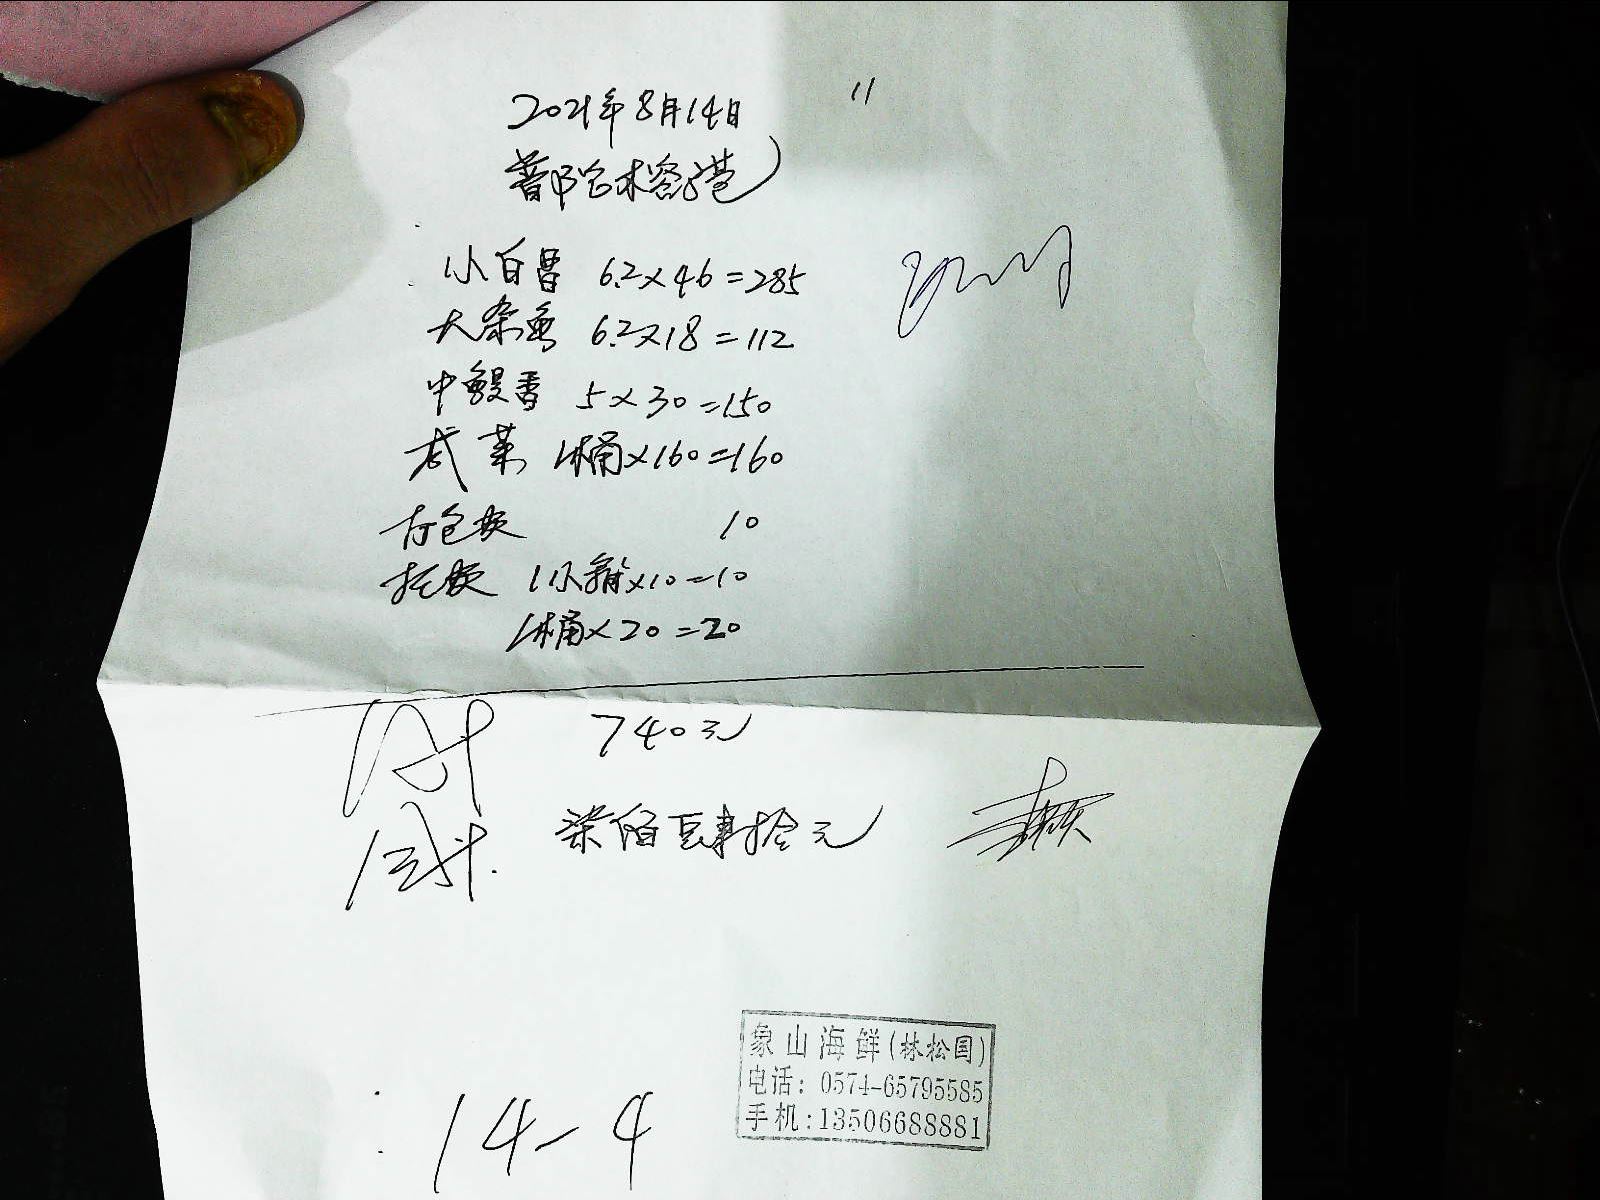 2021年8月14日
11
普陀木客港
小白鲳 6.2×46=285
大杂鱼 6.2×18=112
中鳗香 5×30=150
1桶×160=160
打包费 10
托费 1小箱×10=10
1桶×20=20
740元
柒佰肆拾元
14-4
象山海鲜(林松国)
电话: 0574-65795585
手机:13506688881